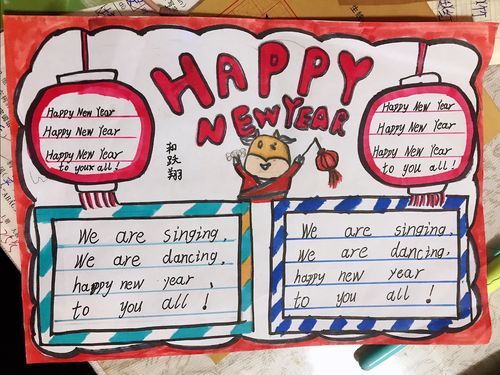 HAPPY
NEW YEAR
Happy New Year
Happy New Year
Happy New Year
to your all!
Happy New Year
Happy New Year
Happy New Year
to you all!
和
跃
翔
We are singing,
We are dancing,
happy new year,
to you all!
We are singing,
We are dancing,
happy new year
to you all!